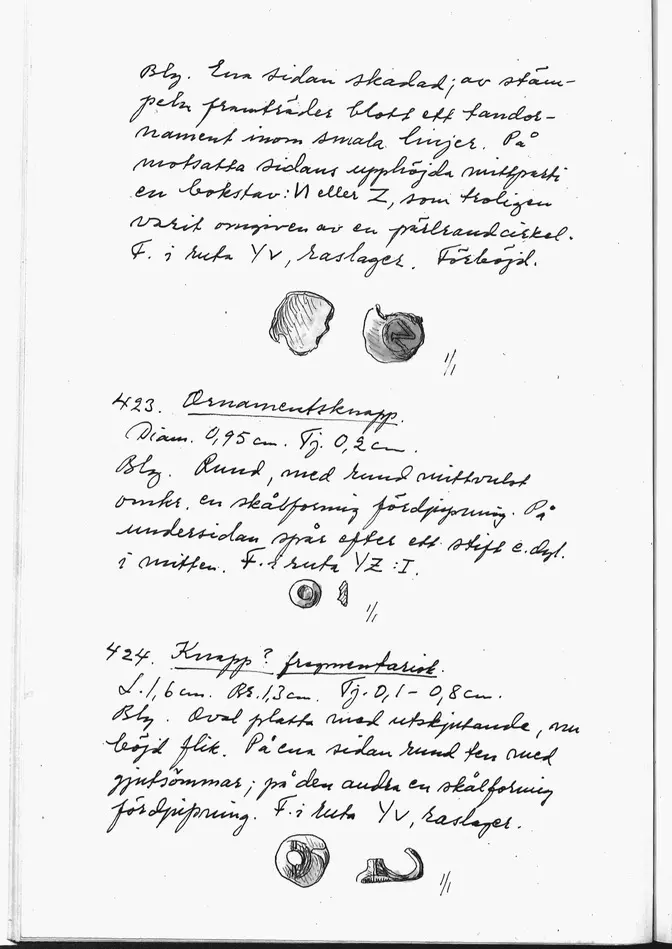 Bly. Ena sidan skadad; av stäm-
peln framträder blott ett tandor-
nament inom smala linjer. På
motsatta sidans upphöjda mittparti
en bokstav: И eller Z, som troligen
varit omgiven av en pärlrandcirkel.
F. i ruta YV, raslager. Förböjd.
1/1
423. Ornamentsknapp.
Diam. 0,95 cm. Tj. 0,2 cm.
Bly. Rund, med rund mittvulst
omkr. en skålformig fördjupning. På
undersidan spår efter ett stift e. dyl.
i mitten. F. i ruta YZ:I.
1/1
424. Knapp? fragmentarisk.
L. 1,6 cm. Br. 1,3 cm. Tj. 0,1 – 0,8 cm.
Bly. Oval platta med utskjutande, nu
böjd flik. På ena sidan rund ten med
gjutsömmar; på den andra en skålformig
fördjupning. F. i ruta YV, raslager.
1/1